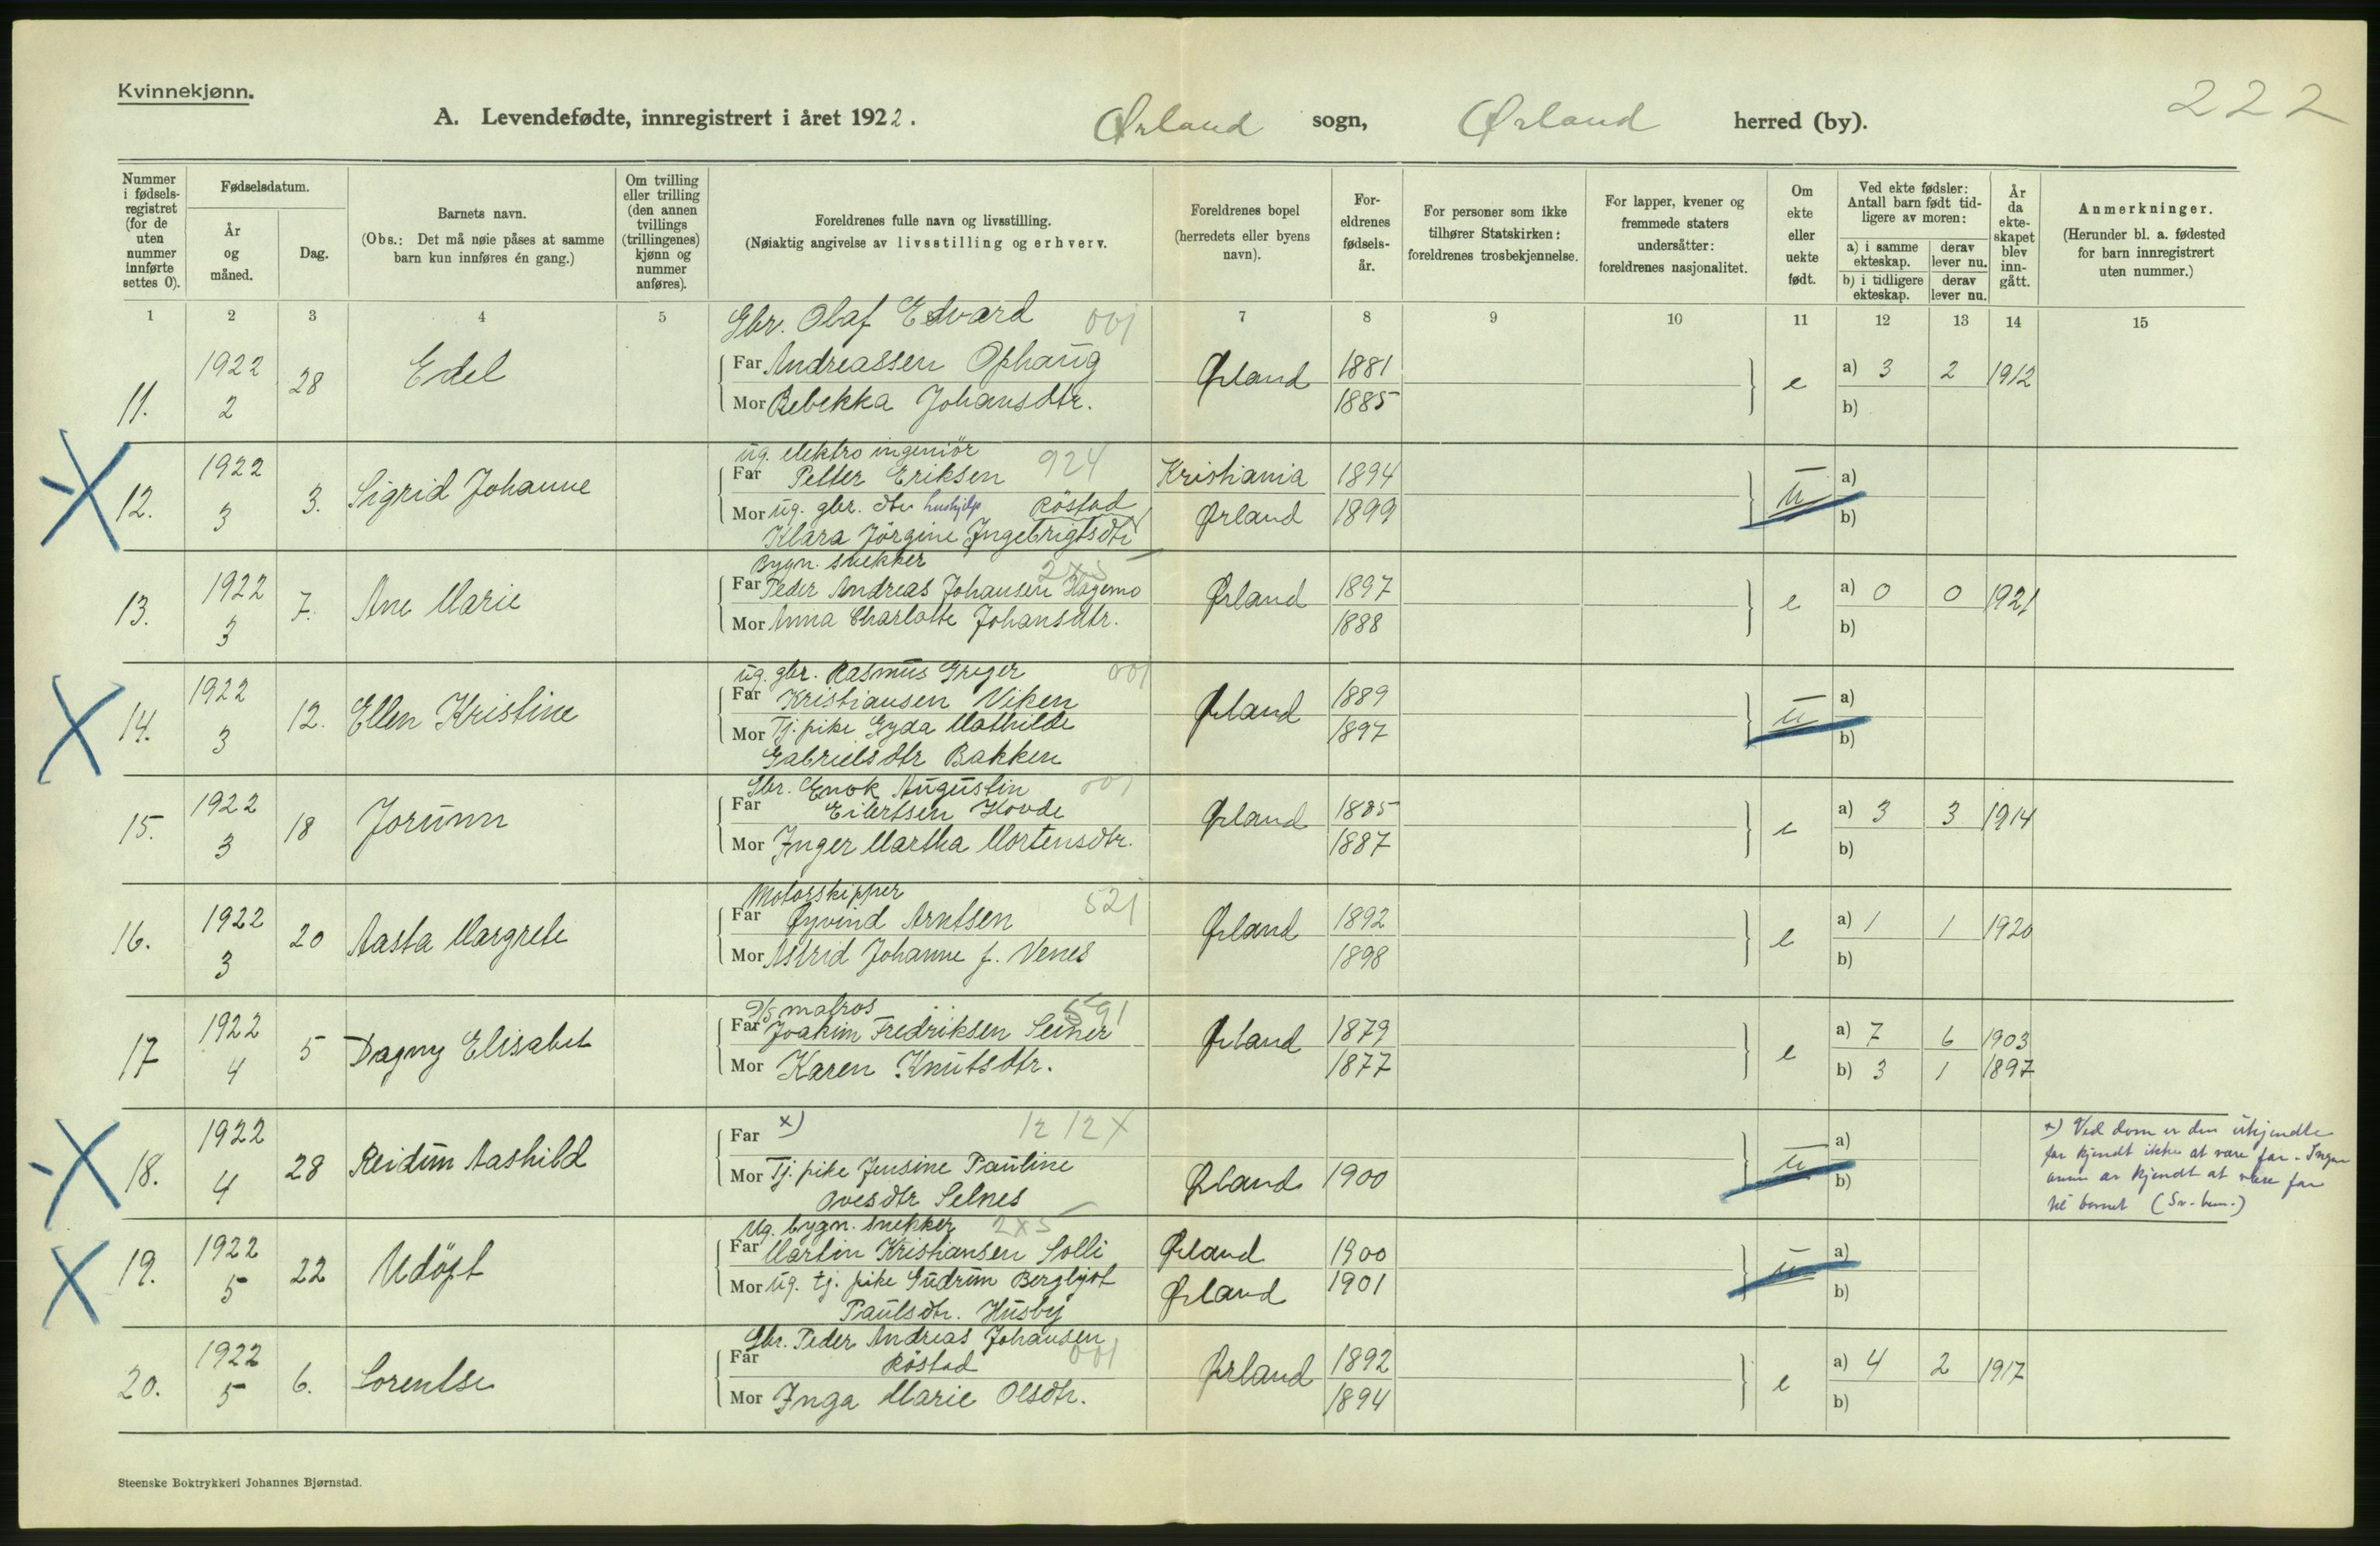 Kvinnekjønn.
222
A. Levendefødte, innregistrert i året 1922. Ørland sogn, Ørland herred (by).
Nummer i fødselsregistret (for de uten nummer innførte settes 0).
Fødselsdatum.
År og måned.
Dag.
Barnets navn.
(Obs.: Det må nøie påses at samme barn kun innføres én gang.)
Om tvilling eller trilling (den annen tvillings (trillingenes) kjønn og nummer anføres).
Foreldrenes fulle navn og livsstilling.
(Nøiaktig angivelse av livsstilling og erhverv.
Foreldrenes bopel (herredets eller byens navn).
Foreldrenes fødselsår.
For personer som ikke tilhører Statskirken: foreldrenes trosbekjennelse.
For lapper, kvener og fremmede staters undersåtter: foreldrenes nasjonalitet.
Om ekte eller uekte født.
Ved ekte fødsler: Antall barn født tidligere av moren:
a) i samme ekteskap. derav lever nu.
b) i tidligere ekteskap. derav lever nu.
År da ekteskapet blev inngått.
Anmerkninger.
(Herunder bl. a. fødested for barn innregistrert uten nummer.)
1 2 3 4 5 7 8 9 10 11 12 13 14 15
Gbr. Olaf Edvard 001
11. 1922 2 28 Edel Far Andreassen Ophaug Ørland 1881 e a) 3 2 1912
Mor Rebekka Johansdtr. 1885 b)
ug. elektro ingeniör 924
12. 1922 3 3. Sigrid Johanne Far Petter Eriksen Kristiania 1894 u a)
Mor ug. gbr. dtr hushjelp Röstad Ørland 1899 b)
Klara Jörgine Ingebrigtsdtr
Bygn. snekker 2x5
13. 1922 3 7. Ane Marie Far Peder Andreas Johansen Hagemo Ørland 1897 e a) 0 0 1921
Mor Anna Charlotte Johansdtr. 1888 b)
ug. gbr. Rasmus Greger 001
14. 1922 3 12. Ellen Kristine Far Kristiansen Viken Ørland 1889 u a)
Mor Tj. pike Gyda Mathilde 1897 b)
Gabrielsdtr Bakken
Gbr. Enok Augustin 001
15. 1922 3 18 Jorunn Far Eilertsen Hovde Ørland 1885 e a) 3 3 1914
Mor Inger Martha Mortensdtr. 1887 b)
Motorskipper 521
16. 1922 3 20 Aasta Margrete Far Øyvind Arntsen Ørland 1892 e a) 1 1 1920
Mor Astrid Johanne f. Venes 1898 b)
D/S matros 591
17 1922 4 5 Dagny Elisabet Far Joakim Fredriksen Ørland 1879 e a) 7 6 1903
Mor Karen Knutsdtr. 1877 b) 3 1 1897
18. 1922 4 28 Reidun Aashild Far x) 12 12 X u a)
Mor Tj. pike Jensine Pauline Ørland 1900 b)
Ovesdtr Selnes
x) Ved dom er den utkjendte
far kjendt ikke at være far. Ingen
annen er kjendt at være far
til barnet
Ug. bygn. snekker 2x5
19. 1922 5 22 Udöpt Far Martin Kristiansen Solli Ørland 1900 u a)
Mor ug. tj. pike Gudrun Bergljot Ørland 1901 b)
Paulsdtr. Husby
Gbr. Peder Andreas Johansen 001
20. 1922 5 6. Lorentse Far Röstad Ørland 1892 e a) 4 2 1917
Mor Inga Marie Olsdtr. 1894 b)
Steenske Boktrykkeri Johannes Bjørnstad.